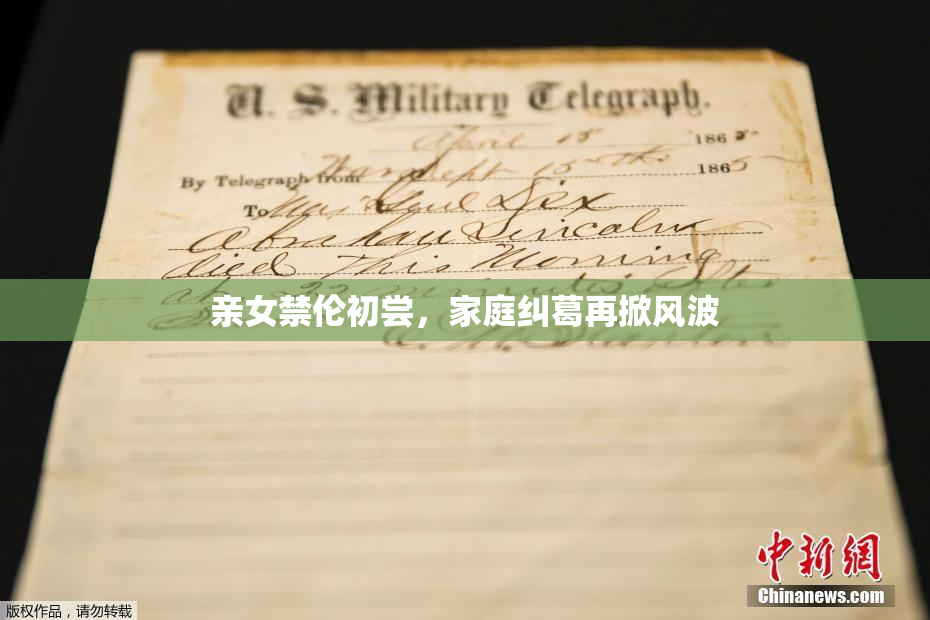 U. S. Military Telegraph.
April 15 1865
By Telegraph from War Dept 15th 1865
To Maj Genl Dix
Abraham Lincoln
died This Morning
at 22 minutes after
亲女禁伦初尝，家庭纠葛再掀风波
E. M. Stanton
中新网
Chinanews.com
版权作品，请勿转载